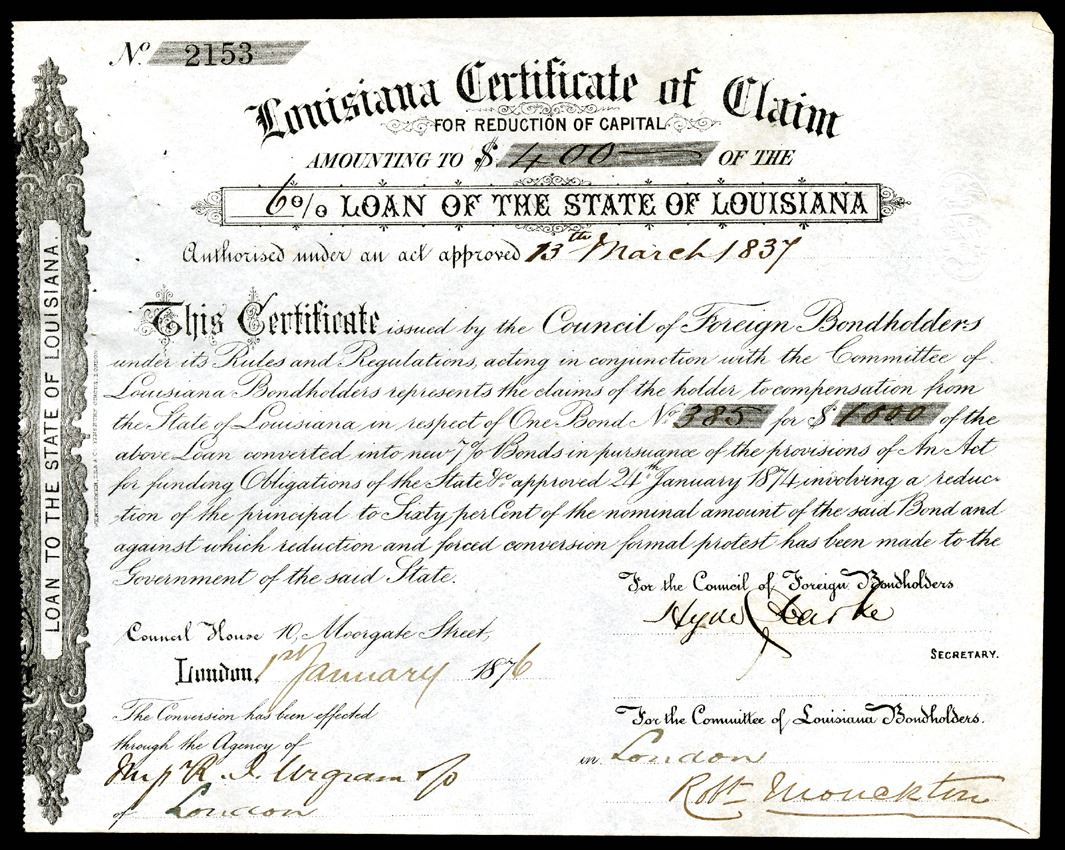 No. 2153
Louisiana Certificate of Claim
FOR REDUCTION OF CAPITAL
AMOUNTING TO $ 400 OF THE
6% LOAN OF THE STATE OF LOUISIANA
Authorised under an act approved 13th March 1837
This Certificate issued by the Council of Foreign Bondholders
under its Rules and Regulations, acting in conjunction with the Committee of
Louisiana Bondholders represents the claims of the holder to compensation from
the State of Louisiana in respect of One Bond No. 385 for $ 1000 of the
above Loan converted into new 7% Bonds in pursuance of the provisions of An Act
for funding Obligations of the State &c. approved 24th January 1874 involving a reduc-
tion of the principal to Sixty per Cent of the nominal amount of the said Bond and
against which reduction and forced conversion formal protest has been made to the
Government of the said State.
For the Council of Foreign Bondholders
Hyde Clarke
SECRETARY.
Council House 10, Moorgate Street,
London, 1st January 1876
The Conversion has been effected
through the Agency of
of London
For the Committee of Louisiana Bondholders.
in London
Robt Monckton
LOAN TO THE STATE OF LOUISIANA.